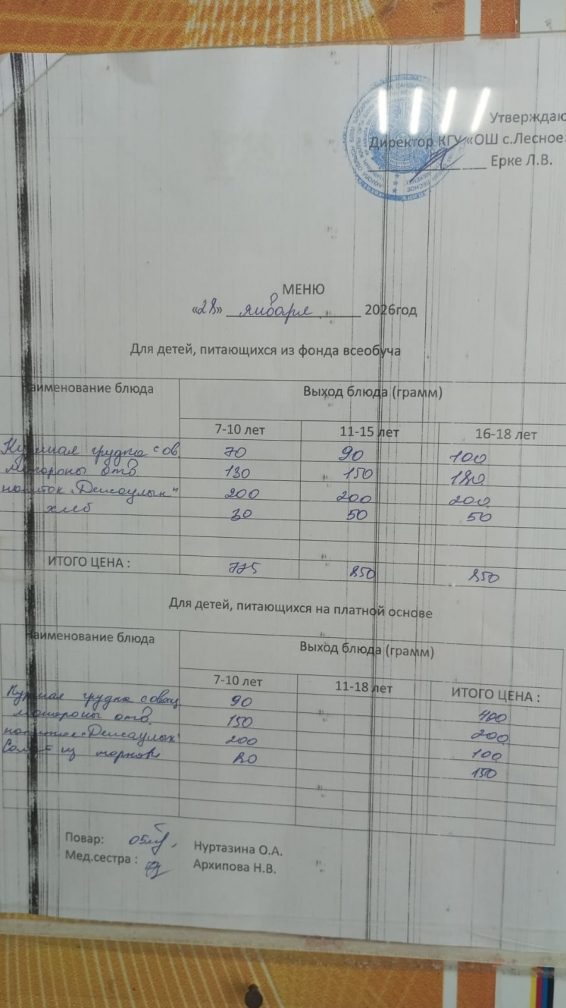 Утверждаю
Директор КГУ «ОШ с.Лесное»
Ерке Л.В.
МЕНЮ
«28» января 2026год
Для детей, питающихся из фонда всеобуча
Наименование блюда Выход блюда (грамм)
7-10 лет 11-15 лет 16-18 лет
Куриная грудка с ов 70 90 100
макароны отв. 130 150 180
напиток „Денсаулык" 200 200 200
хлеб 30 50 50
ИТОГО ЦЕНА : 775 850 850
Для детей, питающихся на платной основе
Наименование блюда Выход блюда (грамм)
7-10 лет 11-18 лет ИТОГО ЦЕНА :
Куриная грудка с овощ 90 400
макароны отв. 150 200
напиток „Денсаулык" 200 100
из 80 150
Повар: Нуртазина О.А.
Мед.сестра : Архипова Н.В.